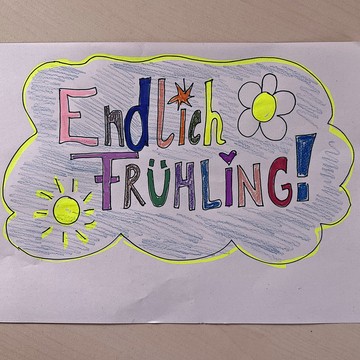 Endlich
FRÜHLING!